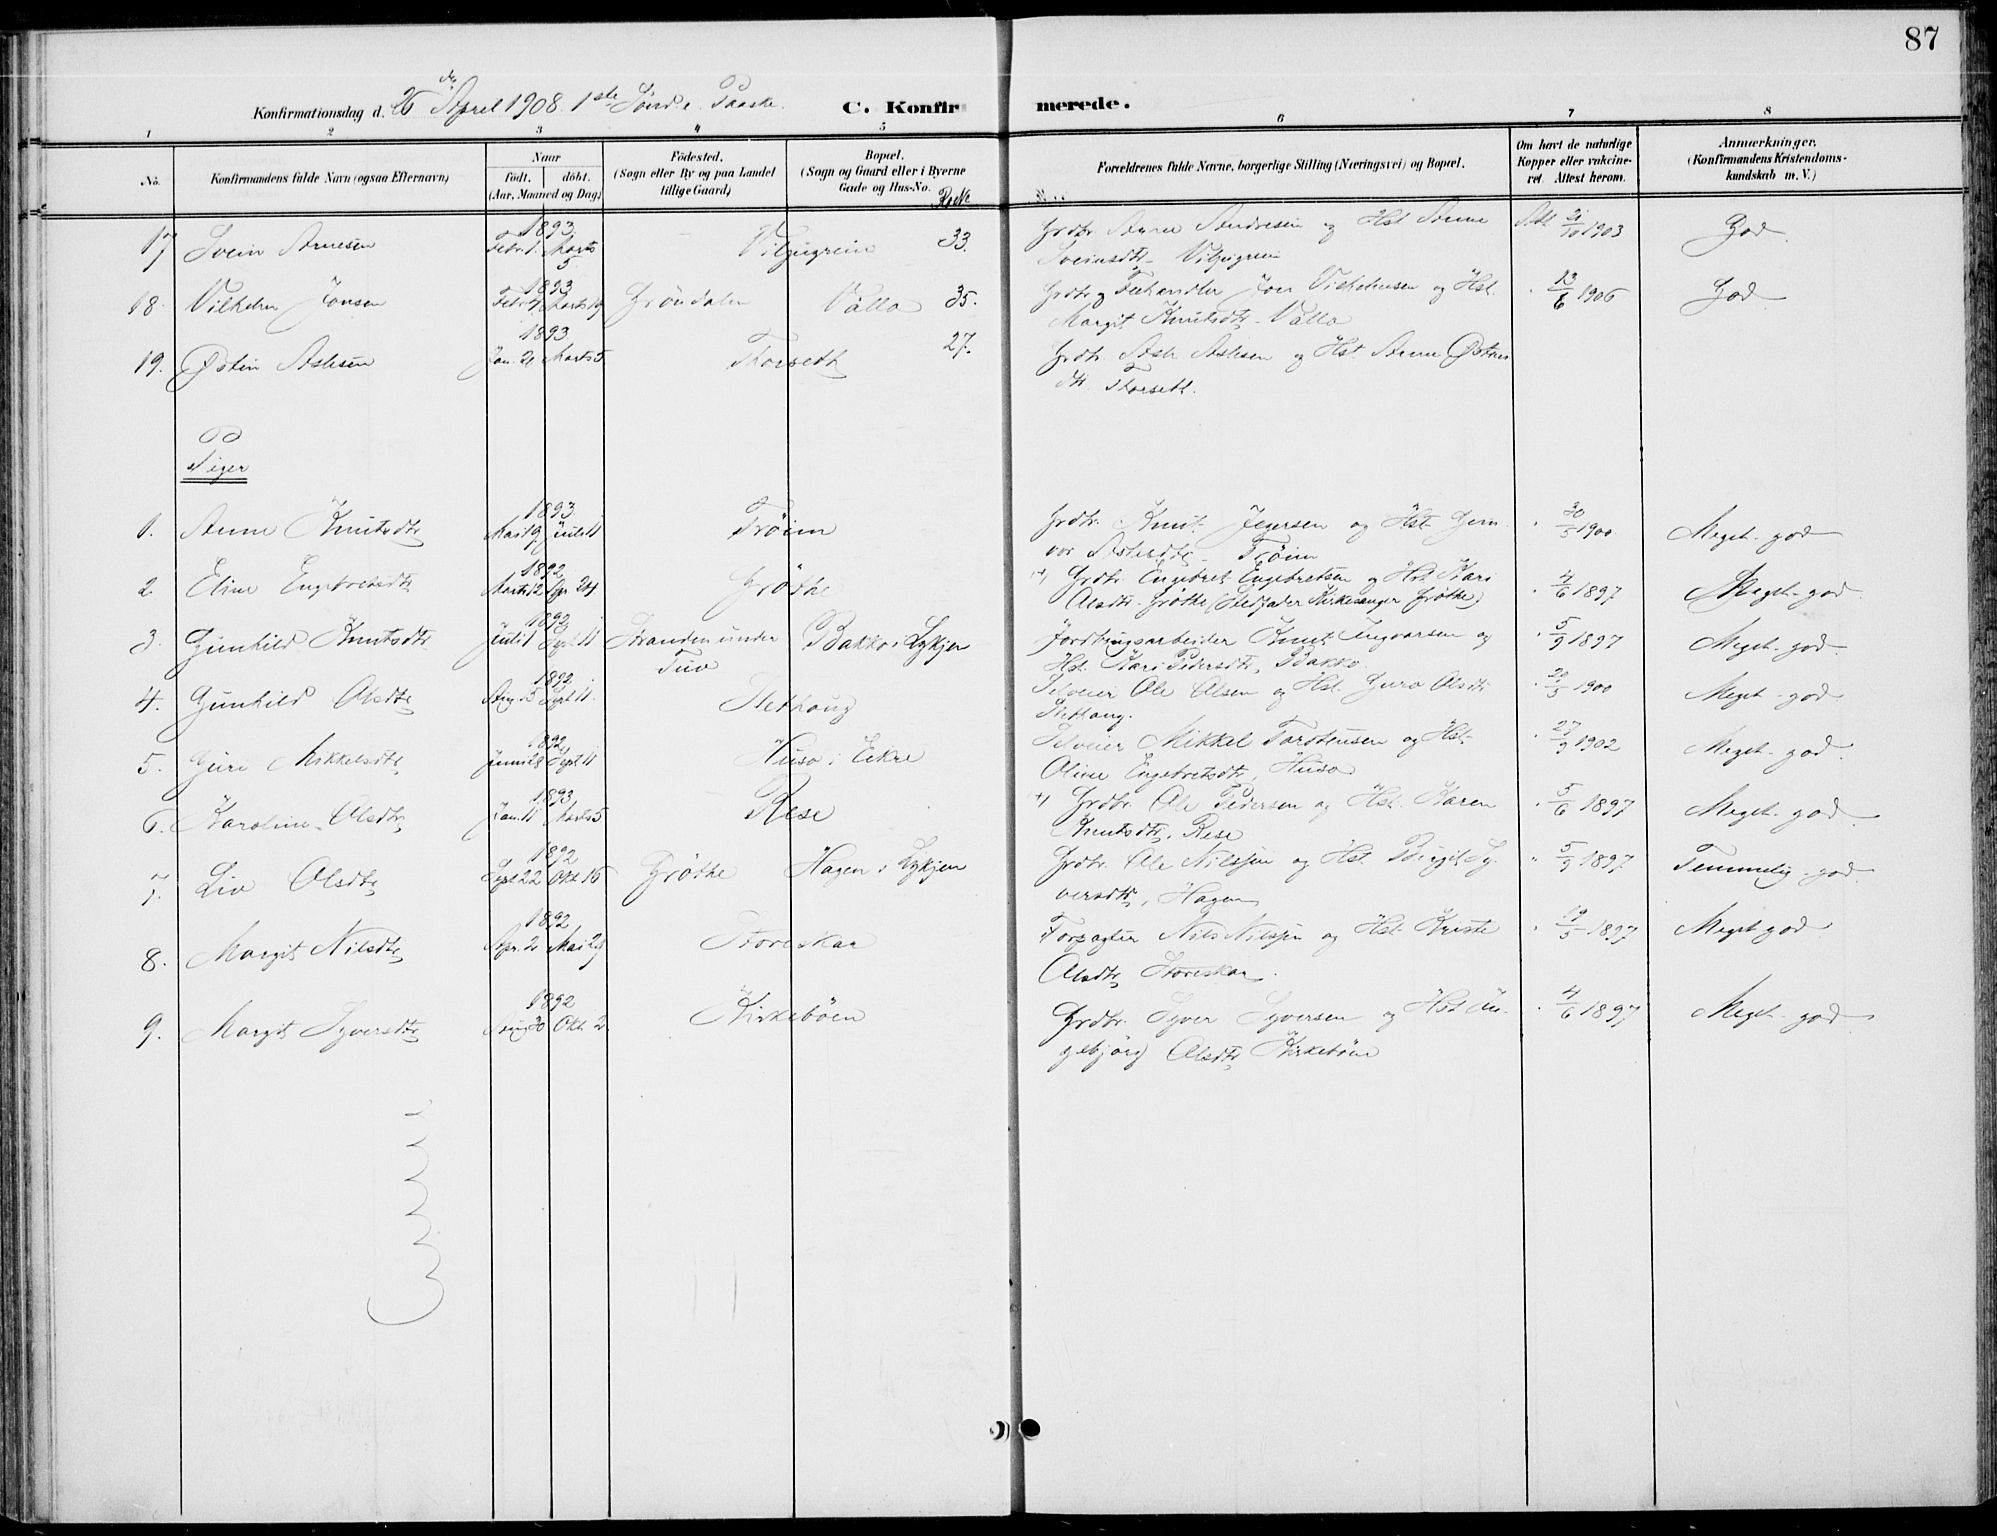 87
Konfirmationsdag d. 26 April 1908. 1ste Sönd. e. Paaske. C. Konfirmerede.
1 2 3 4 5 6 7 8
No. Konfirmandens fulde Navn (ogsaa Efternavn) Naar födt. döbt. (Aar, Maaned og Dag) Födested. (Sogn eller By og paa Landet tillige Gaard) Bopæl. (Sogn og Gaard eller i Byerne Gade og Hus-No. Forældrenes fulde Navne, borgerlige Stilling (Næringsvei) og Bopæl. Om havt de naturlige Kopper eller vakcineret. Attest herom. Anmærkninger. (Konfirmandens Kristendomskundskab m. V.)
1893
17 Svein Arnesen Febr. 1. Marts 5. 33. Grdbr. Arne Andresen og Hst. Anne 21/10 1903 God
Sveinsdtr.
1893
18. Vilhelm Jonsen Febr. 7 Marts 19 Gröndalen Valla 35. Grdbr. og Fehandler Joen Vilhelmsen og Hst. " 13/6 1906 God
Margit Knutsdtr. Valla
1893
19. Østen Aslesen Jan. 21 Marts 5 Thorseth 27. Grdbr. Asle Aslesen og Hst. Anne Østens
dtr. Thorseth.
Piger
1893
1. Anne Knutsdtr. Mai 19. Juli 11 Tröim Grdbr. Knut Jegersen og Hst. Gun- " 30/5 1900 Meget god
vor Aslesdtr. Tröim
1892
2 Eline Engebretsdtr. Marts 12 Apr. 24 Gröthe +) Grdbr. Engebret Engebretsen og Hst. Kari " 4/6 1897 Meget god.
Olsdtr. Gröthe (Stedfader Kirkesanger Gröthe)
1892
3. Gunhild Knutsdtr. Juli 1 Sept. 11 Stranden under Tuv Bakko i Lykjen Jordbrugsarbeider Knut Ingvarsen og " 5/9 1897 Meget god
Hst. Kari Pedersdtr, Bakko.
1892
4. Gunhild Olsdtr. Aug. 5 Sept. 11. Slethaug Selveier Ole Olsen og Hst. Guro Olsdtr. " 20/5 1900 Meget god
Slethaug.
1892
5. Guri Mikkelsdtr. Juni 28 Sept. 11 Huso i Ekre Selveier Mikkel Torstensen og Hst. " 27/9 1902 Meget god
Oline Engebretsdtr, Huso
1893
6. Karoline Olsdtr. Jan. 11 Marts 5 Rese +) Grdbr. Ole Pedersen og Hst. Karen " 5/6 1897 Meget god
Knutsdtr. Rese
1892
7. Liv Olsdtr. Sept. 22 Okt. 16 Gröthe Hagen i Lykjen Grdbr. Ole Nilssen og Hst. Birgit Sy- " 5/9 1897 Temmelig god
versdtr, Hagen
1892
8. Margit Nilsdtr. Apr. 2 Mai 29 Storeskar Forpagter Nils Nilssen og Hst. Kriste " 19/5 1897 Meget god
Olsdtr. Storeskar.
1892
9. Margit Syversdtr. Aug. 30 Okt. 2. Kirkeböen Grdbr. Syver Syversen og Hst. In- " 4/6 1897 Meget god
gebjörg Olsdtr. Kirkeböen